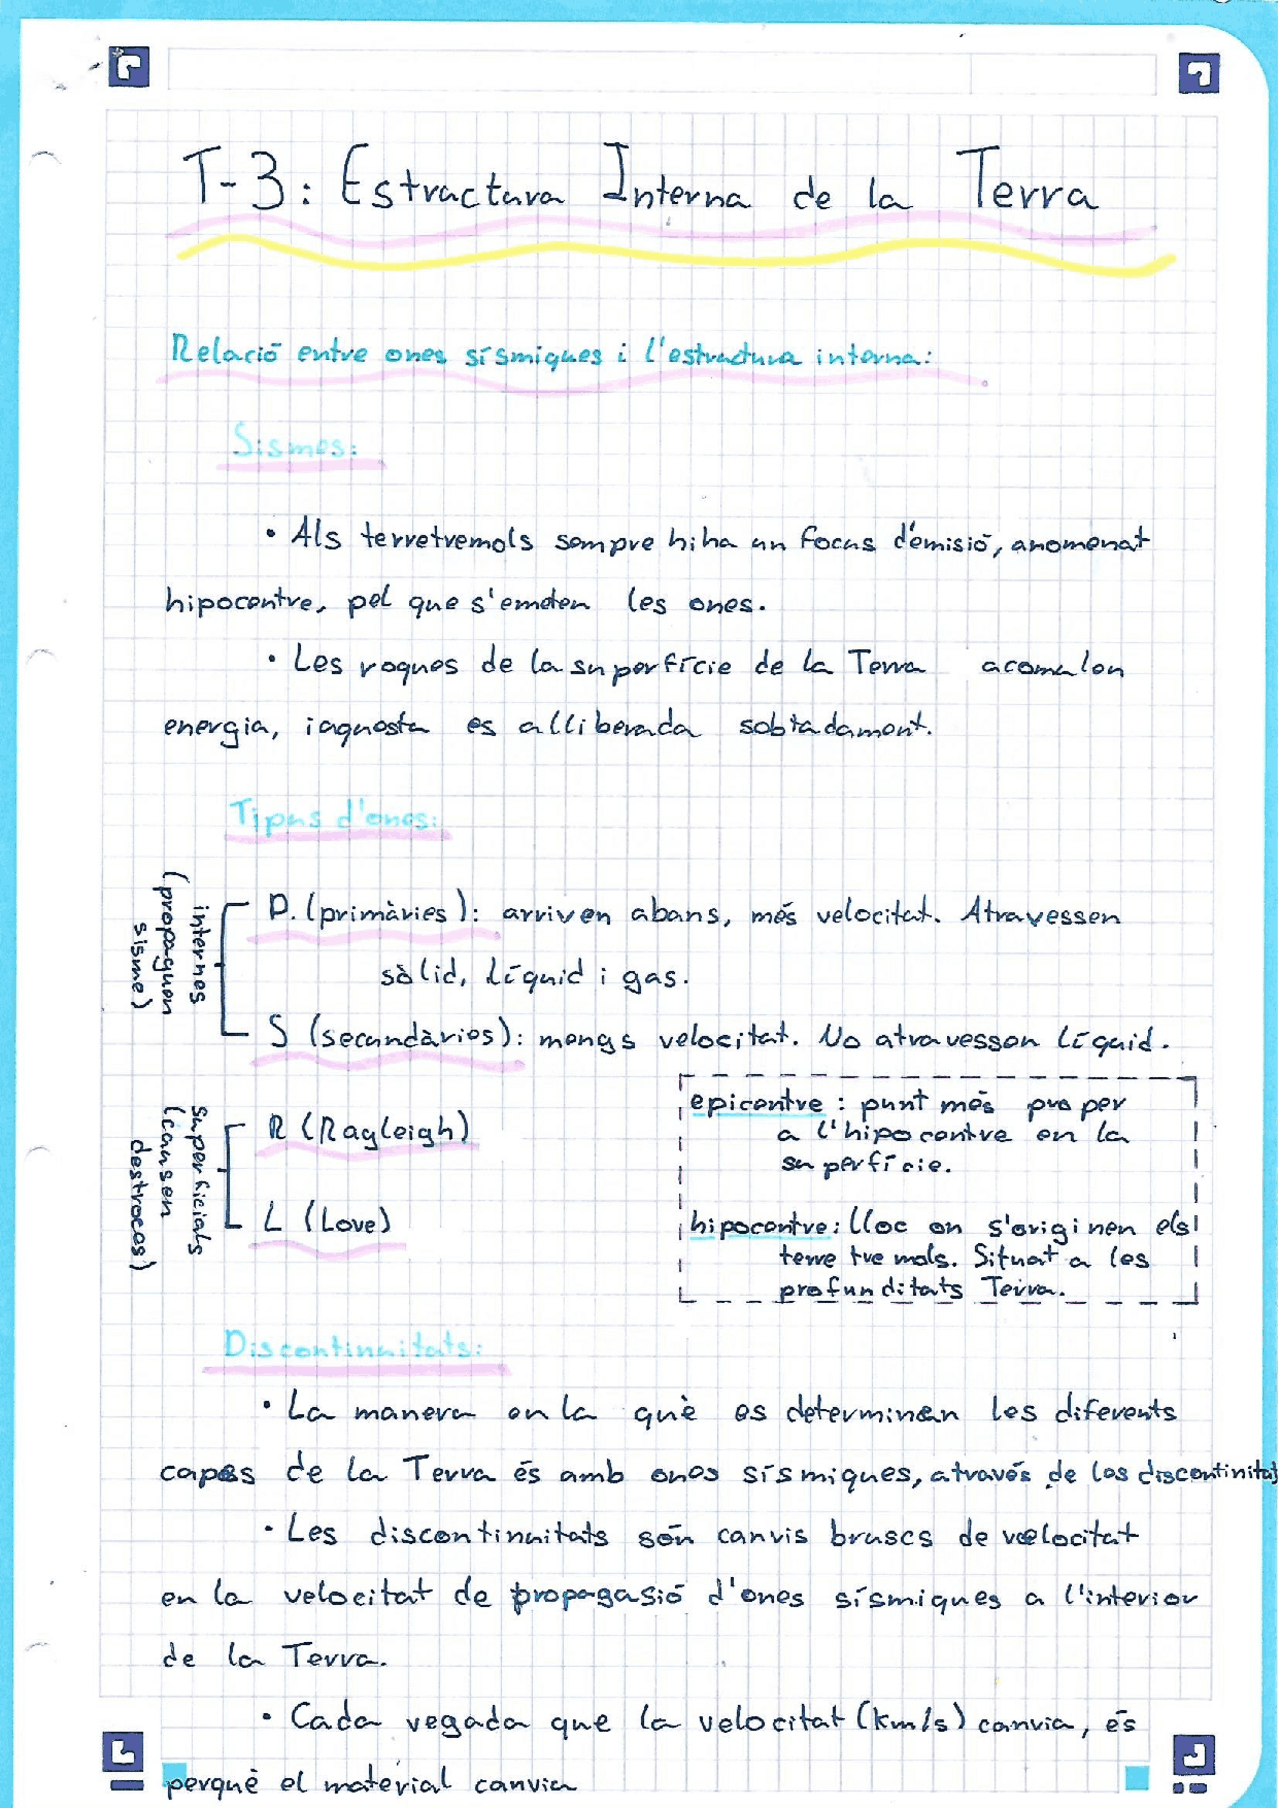 T-3: Estructura Interna de la Terra
Relació entre ones sísmiques i l'estructura interna:
Sismes:
• Als terretremols sempre hi ha un focus d'emisió, anomenat
hipocentre, pel que s'emeten les ones.
• Les roques de la superfície de la Terra acomulen
energia, i aquesta es alliberada sobtadament.
Tipus d'ones:
internes
(propaguen
sisme)
P. (primàries): arriven abans, més velocitat. Atravessen
sòlid, líquid i gas.
S (secundàries): mengs velocitat. No atravessen líquid.
superficials
(causen
destroces)
R (Ragleigh)
L (Love)
epicentre: punt més proper
a l'hipocentre en la
superfície.
hipocentre: lloc on s'originen els
terretremols. Situat a les
profunditats Terra.
Discontinuitats:
• La manera en la què es determinen les diferents
capes de la Terra és amb ones sísmiques, através de les discontinitat
• Les discontinuitats són canvis bruscs de velocitat
en la velocitat de propagasió d'ones sísmiques a l'interior
de la Terra.
• Cada vegada que la velocitat (km/s) canvia, és
perquè el material canvia